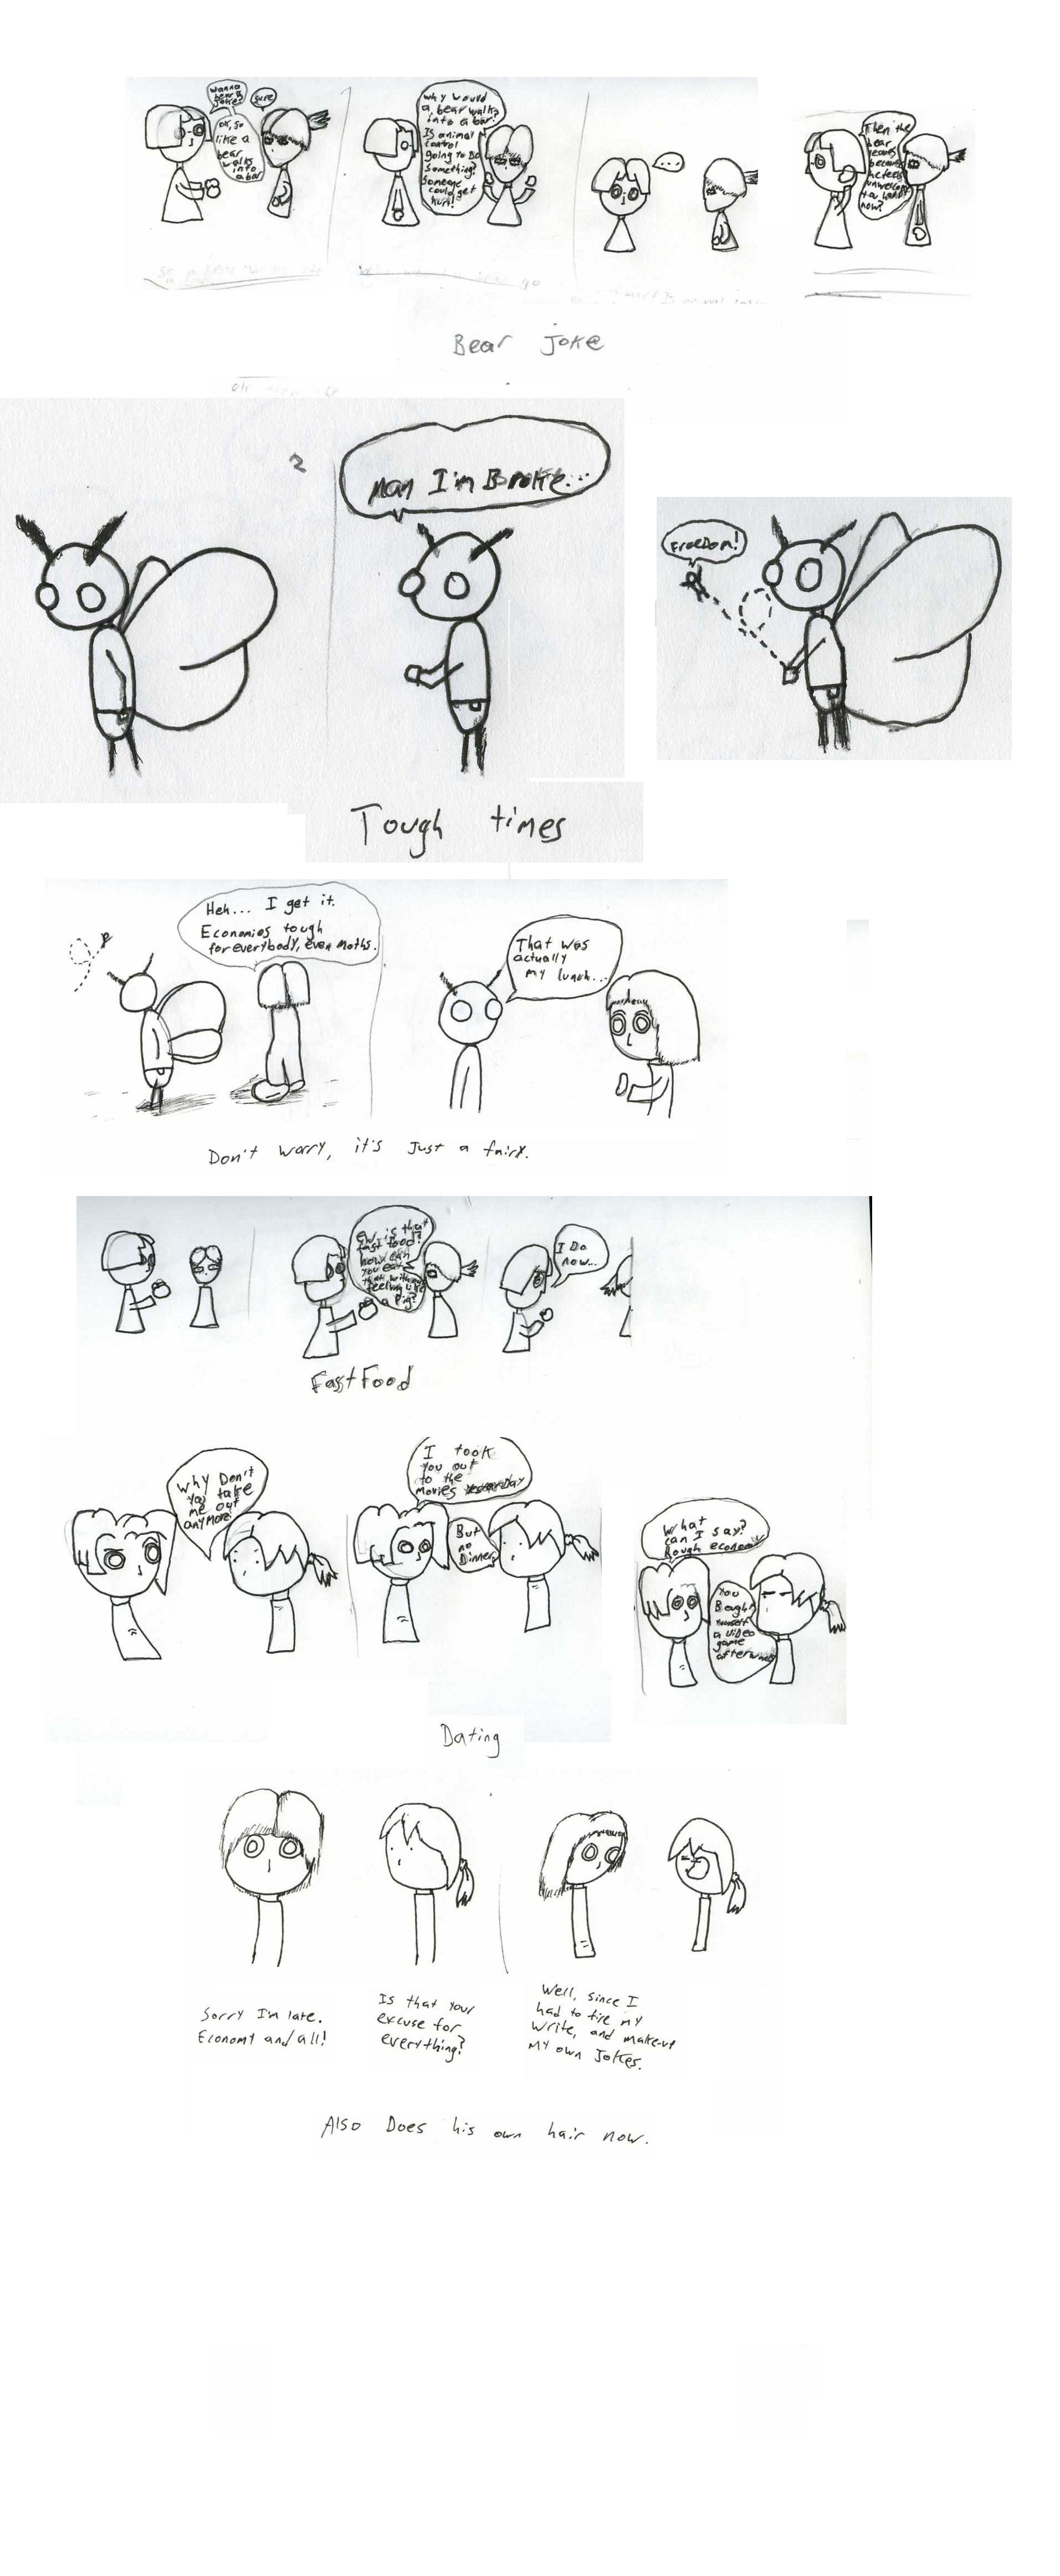 Wanna
hear a
joke?
Sure
OK, so
like a
bear
walks
into
a bar
Why would
a bear walk
into a bar?
Is animal
control
going to Do
something?
Someone
could get
hurt!
...
Then the
bear
leaves
because
he feels
unwelcome
now?
Bear Joke
2
Man I'm Broke...
FreeDom!
Tough times
Heh... I get it.
Economies tough
for everybody, even moths.
That was
actually
my lunch...
Don't worry, it's Just a fairy.
Ew, is that
fast food?
how can
you eat
that without
feeling like
a Pig?
I Do
now...
Fast Food
Why Don't
You take
me out
anymore?
I took
You out
to the
Movies YesterDay
But
no
Dinner
What
can I say?
Rough economy
You
Bought
Yourself
a ViDeo
game
afterwards
Dating
Sorry I'm late.
Economy and all!
Is that your
excuse for
everything?
Well, since I
had to fire my
write, and make-up
MY own Jokes.
Also Does his own hair now.